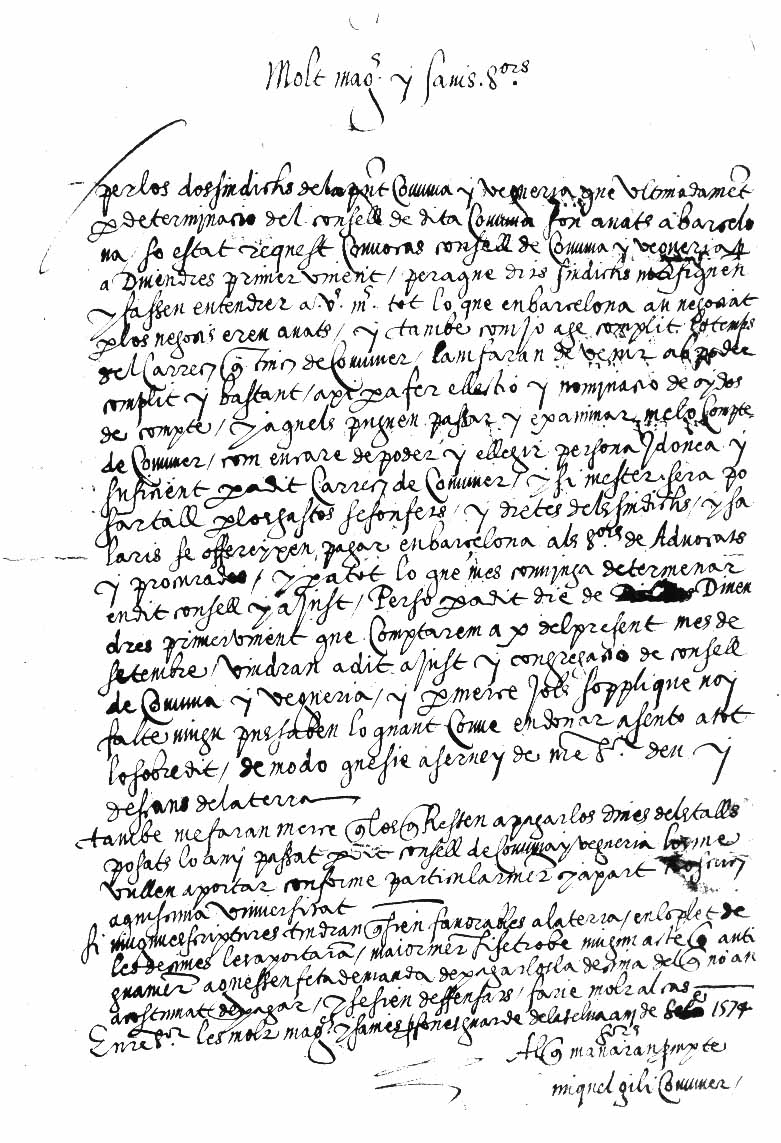 Molt magcs. y savis. sors
per los dos sindichs de la pnt Comuna y vegueria que ultimadamet
p determinacio del consell de dita Comuna son anats a barcelo
na, so estat request convocas consell de Comuna y vegueria p
a Divendres primervinent, peraque dits sindichs
y fassen entendrer a. v. m. tot lo que en barcelona an negociat
p los negocis eren anats, y tambe com jo age complit lo temps
del Carrech q tinch de Comuner, lam faran de venir ab poder
complit y bastant, axi p a fer ellectio y nominacio de oydos
de compte, y aquels puguen passar y examinar me lo Compte
de Comuner, com encare de poder y ellegir persona Idonea y
suficient p a dit Carrech de Comuner, y si mester sera po
sar tall p los gastos se son fets, y dietes dels sindichs, y sa
laris se offereyxen pagar en barcelona als sors de Advocats
y procurados, y p a tot lo que mes convinga determenar
en dit consell y ajust, Perso p a dit die de Diven
dres primervinent que Comptarem a x del present mes de
setembre, vindran a dit ajust y congregacio de consell
de Comuna y vegueria, y p merce Jols sopplique noy
falte ningu pus saben lo quant Conve en donar asento a tot
lo sobredit, de modo que sie a servey de nre sr. deu y
descans de la terra
tambe me faran merce q los q Resten a pagar los dines dels talls
posats lo any passat p dit consell de Comuna y vegueria los me
vullen aportar conforme particularmet y apart
aquisima universitat
si ningunes scriptures tindran q sien favorables a la terra, en lo plet de
les decimes les aportara, maiormet si se trobe ningun acte q anti
guamet aguessen feta demanda de pagarlos la decima dels q no an
acostumat de pagar, y se sien deffensats, farie molt al cas
Enre sr. les molt magcs y savies psones guarde de la selva a de 1574
Al q manaran sors prompte
miquel gili Comuner,